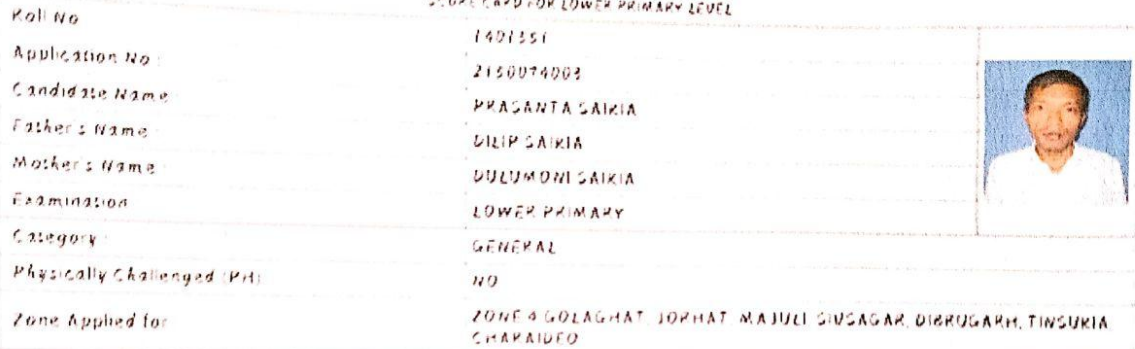 SCORE CARD FOR LOWER PRIMARY LEVEL
Roll No 1401351
Application No : 2130074003
Candidate Name PRASANTA SAIKIA
Father's Name DILIP SAIKIA
Mother's Name DULUMONI SAIKIA
Examination LOWER PRIMARY
Category : GENERAL
Physically Challenged (PH) NO
Zone Applied for ZONE 4 GOLAGHAT, JORHAT MAJULI SIVSAGAR, DIBRUGARH, TINSUKIA
CHARAIDEO